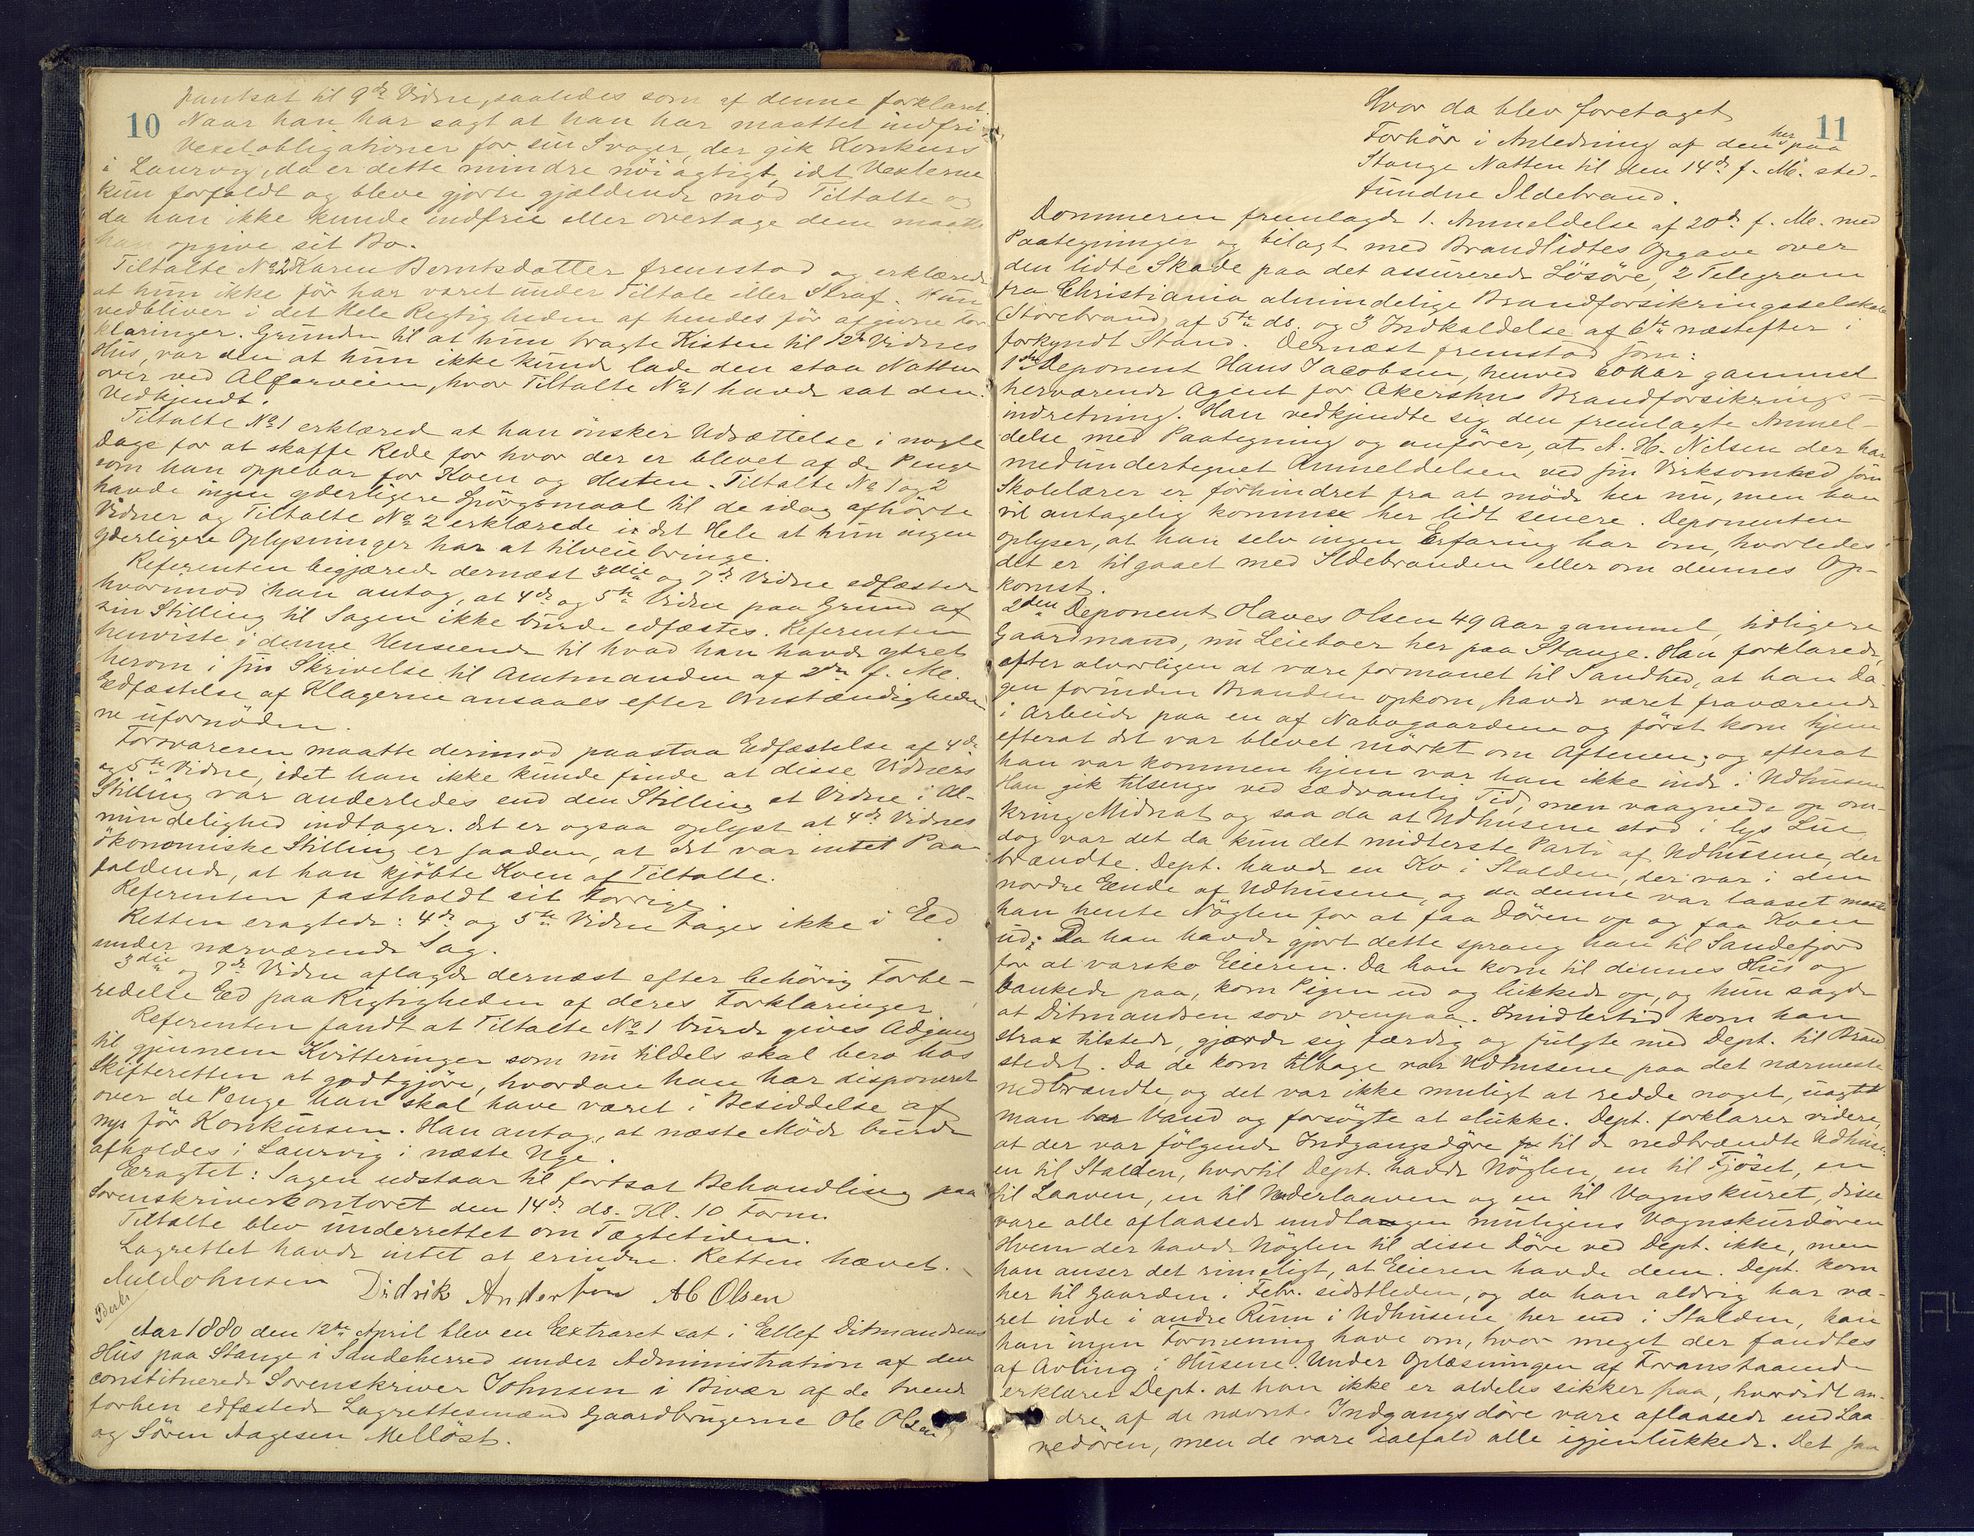 10
pantsat til 9de Vidne, saaledes som af denne forklaret.
Naar han har sagt at han har maattet indfri
Vexelobligationer for sin Svoger, der gik Konkurs
i Laurvig, da er dette mindre nöiagtigt, idet Vexlerne
kun forfaldt og bleve gjorte gjældende mod Tiltalte og
da han ikke kunde indfrie eller overtage dem maatte
han opgive sit Bo.
Tiltalte No 2 Karen Berntsdatter fremstod og erklærede
at hun ikke för har været under Tiltale eller Straf. Hun
vedbliver i det Hele Rigtigheden af hendes för afgivne For
klaringer. Grunden til at hun bragte Kisten til 12te Vidnes
Hus, var den at hun ikke kunde lade den staa Natten
over ved Alfarveien, hvor Tiltalte No 1 havde sat den.
Vedkjendt.
Tiltalte No 1 erklæred at han önsker Udsættelse i nogle
Dage for at skaffe Rede for hvor der er blevet af de Penge
som han oppebar for Koen og Hesten. Tiltalte No 1 og 2
havde ingen yderligere Spörgsmaal til de idag afhörte
Vidner og Tiltalte No 2 erklærede i det Hele at hun ingen
yderligere Oplysninger har at tilveiebringe.
Referenten begjærede dernæst 3die og 7de Vidne edfæstet
hvorimod han antog, at 4de og 5te Vidne paa Grund af
sin Stilling til Sagen ikke burde edfæstes. Referenten
henviste i denne Henseende til hvad han havde ytret
herom i sin Skrivelse til Amtmanden af 2den f. M.
Edfæstelse af Klagerne ansaaes efter Omstændighede
ne ufornöden.
Forsvareren maatte derimod paastaa Edfæstelse af 4de
og 5te Vidne, idet han ikke kunde finde at disse Vidners
Stilling var anderledes end den Stilling et Vidne i Al-
mindelighed indtager. Det er ogsaa oplyst at 4de Vidnes
ökonomiske Stilling er saadan, at det var intet Paa
faldende, at han kjöbte Koen af Tiltalte.
Referenten fastholdt sit Forrige.
Retten eragtede: 4de og 5te Vidne tages ikke i Eed
under nærværende Sag.
3die og 7de Vidne aflagde dernæst efter behörig Forbe-
redelse Eed paa Rigtigheden af deres Forklaringer.
Referenten fandt at Tiltalte No 1 burde gives Adgang
til gjennem Kvitteringer som nu tildels skal bero hos
Skifteretten at godtgjöre, hvordan han har disponeret
over de Penge han skal have været i Besiddelse af
nys för Konkursen. Han antog, at næste Möde burde
afholdes i Laurvig i næste Uge.
Eragtet: Sagen udstaar til fortsat Behandling paa
Sorenskriverkontoret den 14de ds. Kl. 10 Form.
Tiltalte blev underrettet om Tægtetiden.
Lagrettet havde intet at erindre. Retten hævet.
Didrik Andersön AC Olsen
Aar 1880 den 12te April blev en Extraret sat i Ellef Ditmandsens
Hus paa Stange i Sandeherred under Administration af den
constituerede Sorenskriver Johnsen i Bivær af de tvende
forhen edfæstede Lagrettesmænd Gaardbrugerne Ole Olsen
og Sören Aagesen Mellöst.
11
Hvor da blev foretaget
Forhör i Anledning af den her paa
Stange Natten til den 14de f. M. sted-
fundne Ildebrand.
Dommeren fremlagde 1. Anmeldelse af 20de f. M. med
Paategninger og bilagt med Brandlidtes Opgave over
den lidte Skade paa det assurerede Lösöre, 2 Telegram
fra Christiania almindelige Brandforsikringsselskab
Storebrand af 5te ds. og 3 Indkaldelse af 6te næstefter i
forkyndt Stand. Dernæst fremstod som:
1ste Deponent Hans Jacobsen, henved 60 Aar gammel
herværende Agent for Akershus Brandforsikrings-
indretning. Han vedkjendte sig den fremlagte Anmel-
delse med Paategning og anförer, at A. H. Nilsen der har
medundertegnet Anmeldelsen ved sin Virksomhed som
Skolelærer er forhindret fra at möde her nu, men han
vil antagelig komme her lidt senere. Deponenten
oplyser, at han selv ingen Erfaring har om, hvorledes
det er tilgaaet med Ildebranden eller om dennes Op-
komst.
2den Deponent Olaves Olsen 49 Aar gammel, tidligere
Gaardmand, nu Leieboer her paa Stange. Han forklarede,
efter alvorligen at være formanet til Sandhed, at han Da-
gen forinden Branden opkom, havde været fraværende
i Arbeide paa en af Nabogaardene og först kom hjem
efterat det var blevet mörkt om Aftenen; og efterat
han var kommen hjem var han ikke inde i Udhusene
Han gik tilsengs ved sædvanlig Tid, men vaagnede op om-
kring Midnat og saa da at Udhusene stod i lys Lue,
dog var det da kun det midterste Parti af Udhusene, der
brændte. Dept. havde en Ko i Stalden, der var i den
nordre Ende af Udhusene, og da denne var laaset maatte
han hente Nöglen for at faa Dören op og faa Koen
ud; Da han havde gjort dette sprang han til Sandefjord
for at varsko Eieren. Da han kom til dennes Hus og
bankede paa, kom Pigen ud og lukkede op, og hun sagde
at Ditmandsen sov ovenpaa. Imidlertid kom han
strax tilstede, gjorde sig færdig og fulgte med Dept. til Brand
stedet. Da de kom tilbage var Udhusene paa det nærmeste
nedbrændte, og det var ikke muligt at redde noget, uagtet
man bar Vand og forsögte at slukke. Dept. forklarer videre,
at der var fölgende Indgangsdöre til de nedbrændte Udhuse:
en til Stalden, hvortil Dept. havde Nöglen, en til Fjöset, en
til Laaven, en til Underlaaven og en til Vognskuret, disse
vare alle aflaasede undtagen muligens Vognskurdören
Hvem der havde Nöglen til disse Döre ved Dept. ikke, men
han anser det rimeligt, at Eieren havde dem. Dept. kom
her til Gaarden i Febr. sidstleden, og da han aldrig har væ-
ret inde i andre Rum i Udhusene her end i Stalden, kan
han ingen Formening have om, hvor meget der fandtes
af Avling i Husene. Under Oplæsningen af Foranstaaende
erklærer Dept. at han ikke er aldeles sikker paa, hvorvidt an-
dre af de nævnte Indgangsdöre vare aflaasede end Laa
vedören, men de vare ialfald alle igjenlukkede. Det